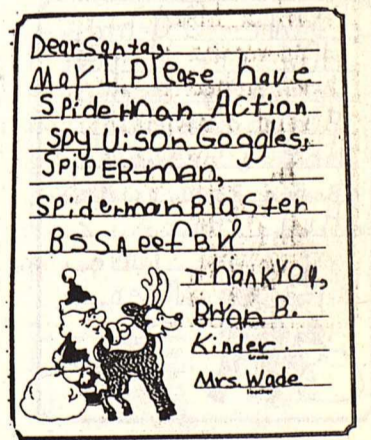 Dear Santa,
May I Please have
Spiderman Action
Spy Uison Goggles,
SPiDER-man,
SpidermanBlaSter
BSSAeefBN
ThanKYOU,
Brian B.
Kinder.
Grade
Mrs. Wade
teacher